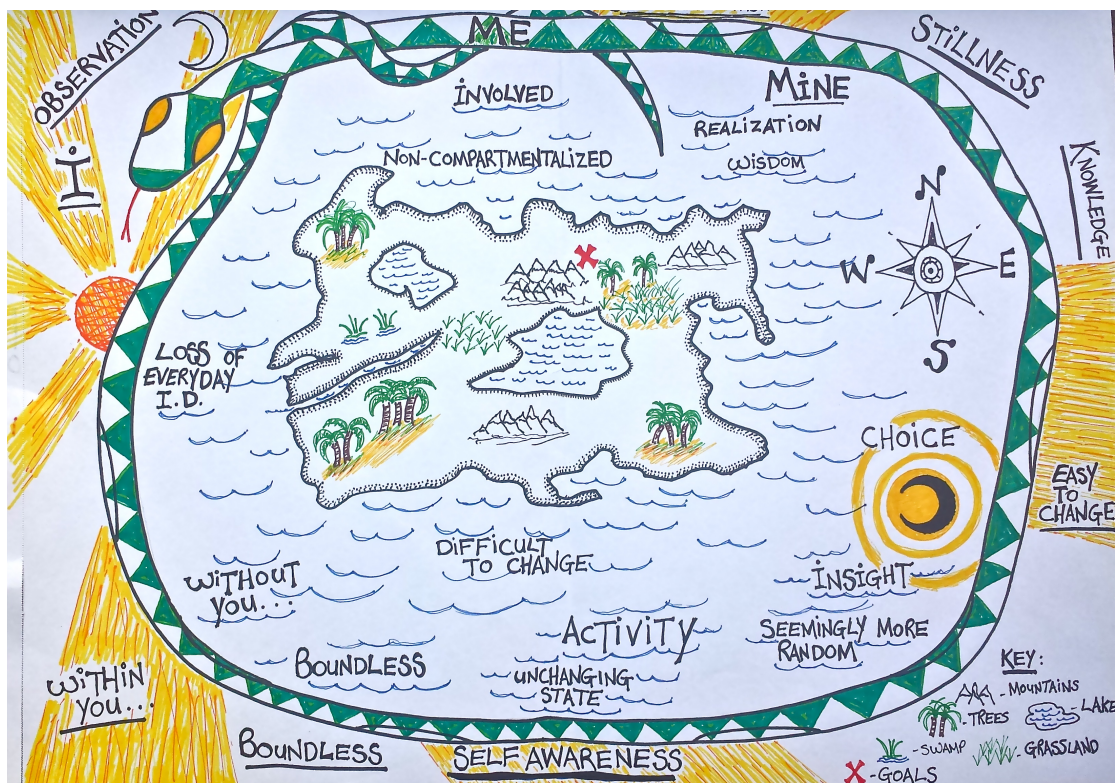 ME
OBSERVATION
STILLNESS
INVOLVED
MINE
REALIZATION
NON-COMPARTMENTALIZED
WISDOM
I
KNOWLEDGE
N
W
E
S
LOSS OF
EVERYDAY
I.D.
CHOICE
EASY
TO
CHANGE
DIFFICULT
TO CHANGE
INSIGHT
WITHOUT
YOU...
ACTIVITY
SEEMINGLY MORE
RANDOM
BOUNDLESS
UNCHANGING
STATE
WITHIN
YOU...
BOUNDLESS
SELF AWARENESS
KEY:
- MOUNTAINS
- TREES
- LAKE
- SWAMP
- GRASSLAND
X - GOALS